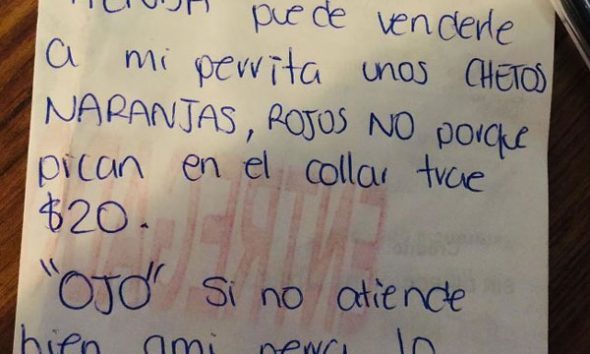 puede venderle
a mi perrita unos CHETOS
NARANJAS, ROJOS NO porque
pican en el collar trae
$20.
"OJO" Si no atiende
bien ami perra lo
ENTREGA